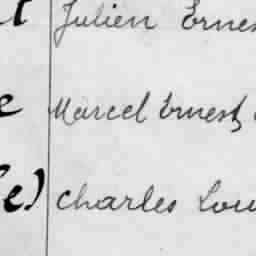 t Julien Ernes
e Marcel Ernest,
e) Charles Lou